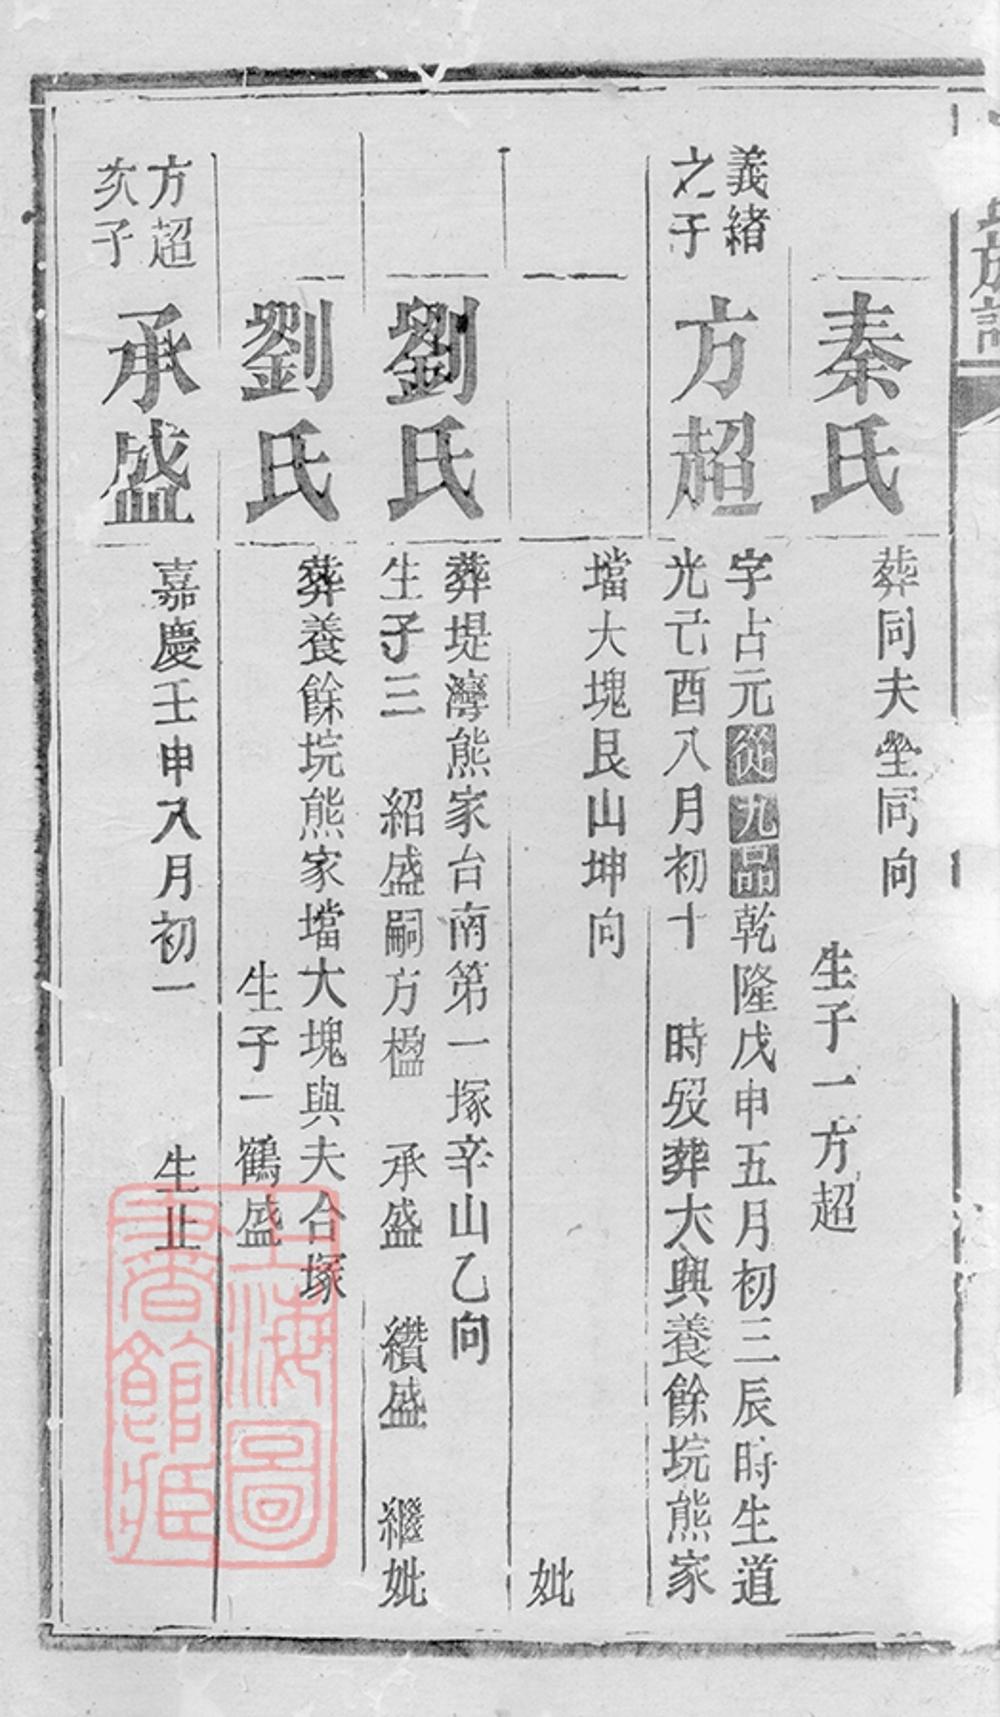 族譜
秦氏
葬同夫塋同向
生子一方超
義緒
之子
方超
字占元從九品乾隆戊申五月初三辰時生道
光己酉八月初十 時歿葬大興養餘垸熊家
壋大塊艮山坤向
妣
劉氏
葬堤灣熊家台南第一塚辛山乙向
生子三 紹盛嗣方楹 承盛 纘盛 繼妣
劉氏
葬養餘垸熊家壋大塊與夫合塚
生子一鶴盛
方超
次子
承盛
嘉慶壬申八月初一 生止
上海圖
書館藏